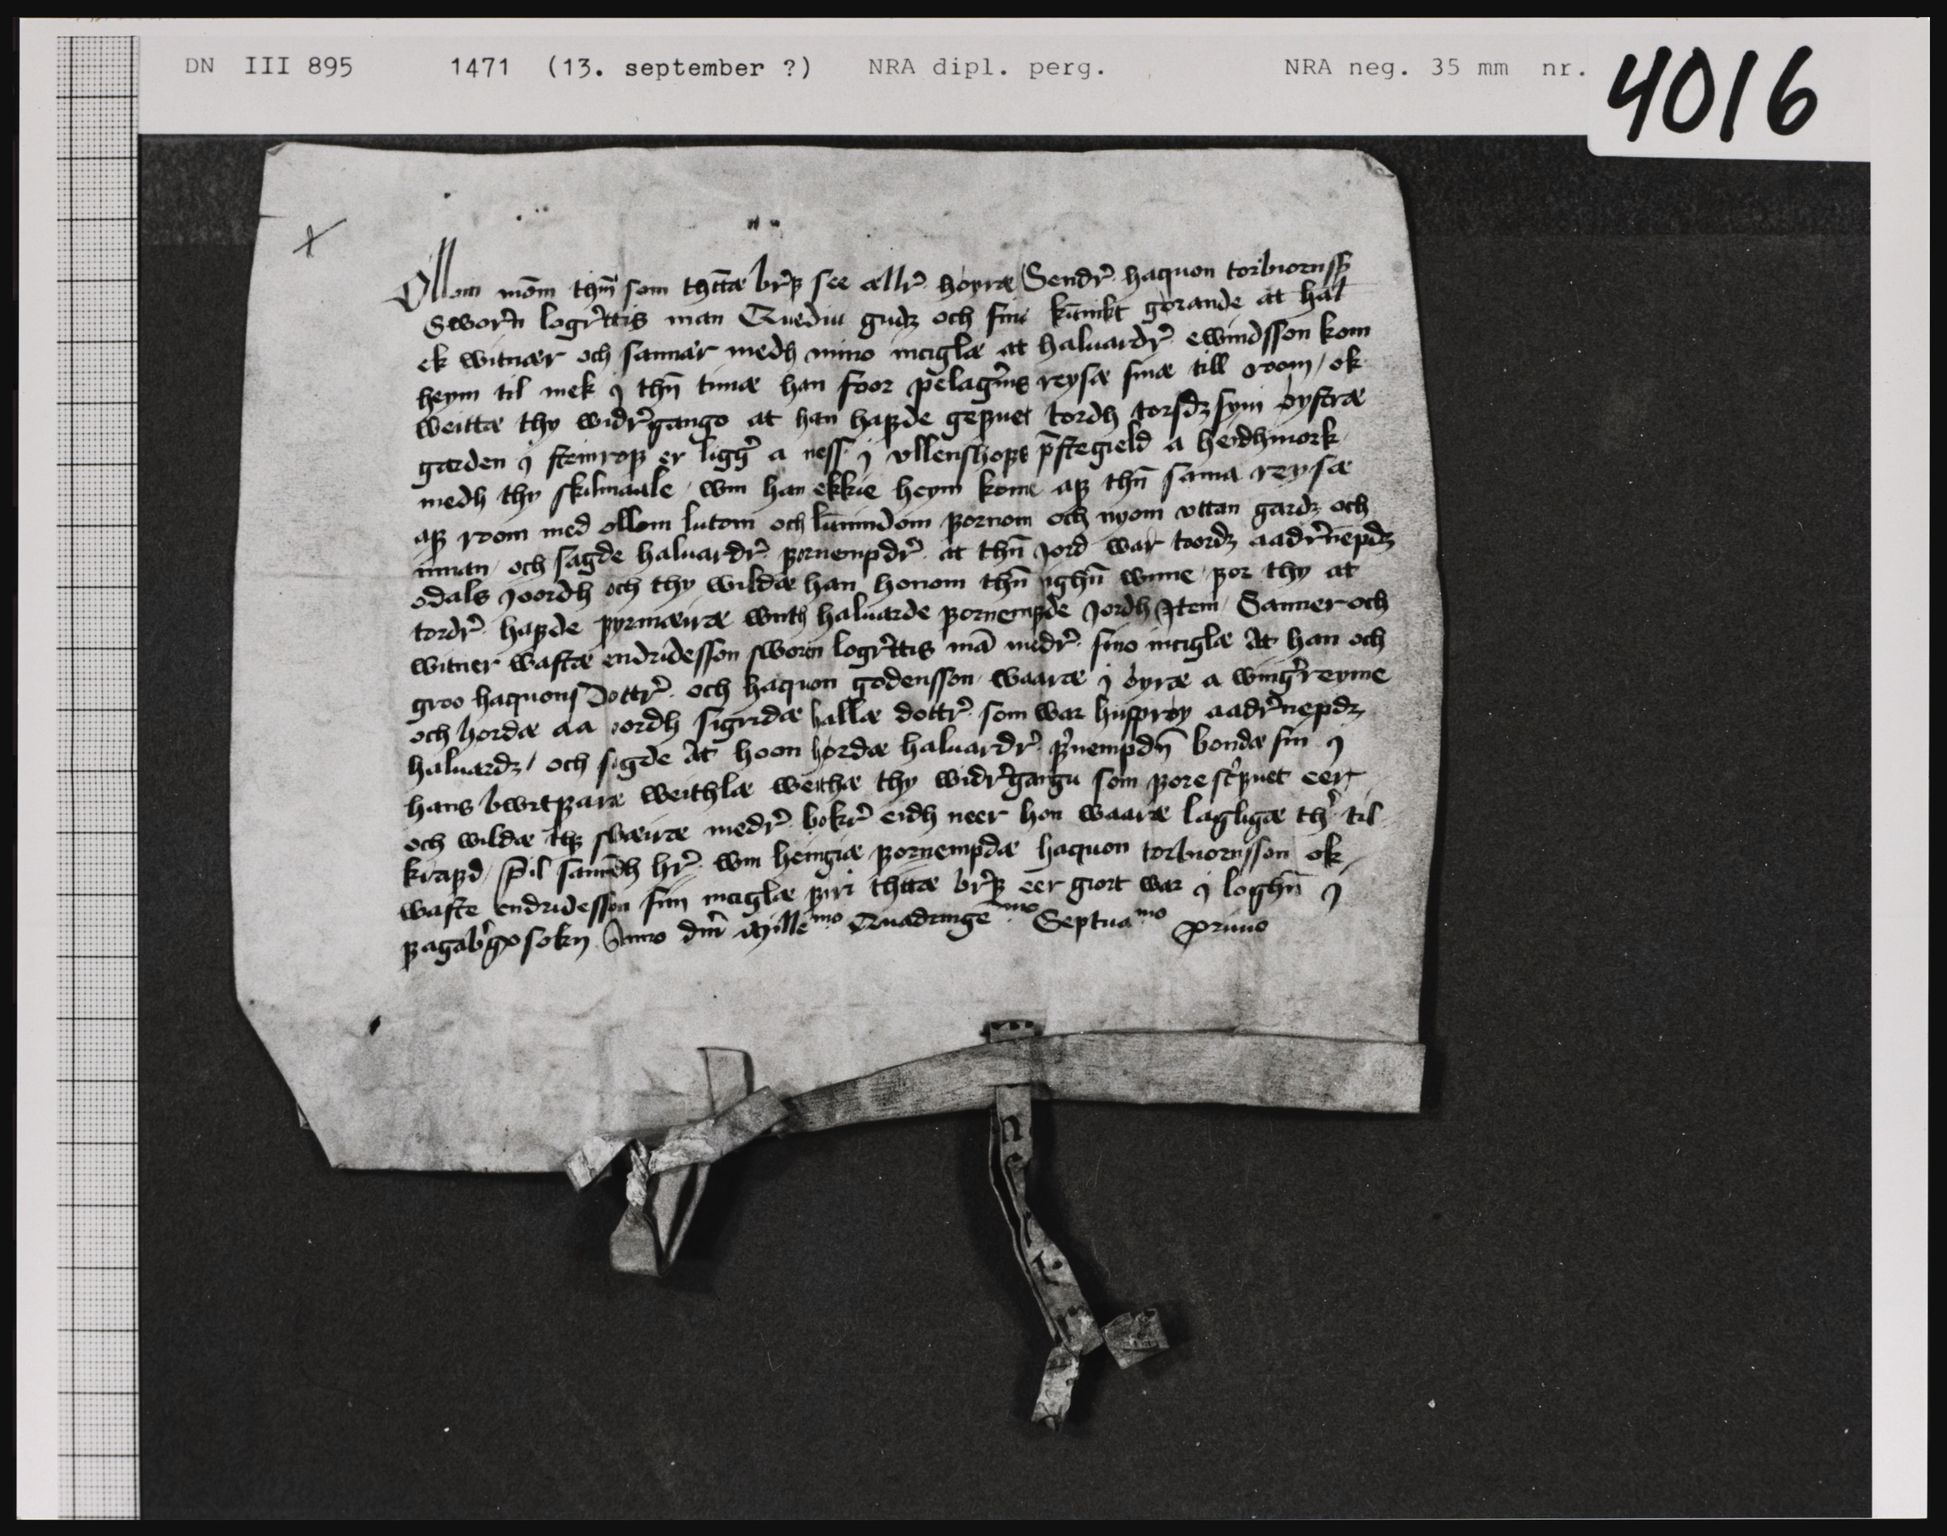 DN III 895 1471 (13. september ?) NRA dipl. perg. NRA neg. 35 mm nr. 4016
Ollom mōm thm̄ som thētta breff see æller høyræ Sender haquon torbiornss
Sworin logrettis man Quediu gudz och sine kunnikt gørande at hāt
ek witnær och sannar medh mino inciglæ at haluarder ewindsson kom
heym til mek j thn̄ timæ han foor pelagrims reysæ sinæ till room / ok
weittæ thy widergango at han hafde gefuet tordh torsdz syni øystræ
garden j steinrof er ligger a ness j vllenshofs prestegield a heidhmork
medh thy skilmaale wm han ekkie heym kome af thn̄ sama reysæ
af room med ollom lutom och lunnindom fornom och nyom vttan gardz och
innan och sagde haluarder fornempder at thn̄ jord war toordz aadernefdz
odals joordh och thy wildæ han honom thn̄ ighn̄ wnne for thy at
torder hafde fyrmæiræ wnth haluarde fornempde jordh Jtem Sanner och
witner wastæ endridesson sworin logrettis mā meder sino inciglæ At han och
groo haquons dotter och haquon godensson waaræ j øyræ a wingreyme
och hørdæ aa oordh sigridæ hallæ dotter som war husfrøy aadernefdz
haluardz / och sigde At hoon hørdæ haluarder fornempdn̄ bondæ sin j
hans bwrtfaræ weithlæ weithæ thy widergangu som fore screfuet eer
och wildæ thz swæiræ meder boker eidh neer hon waaræ lagligæ ther til
krafd / Til sanīdh her wm hengiæ fornempdæ haquon torbiornsson ok
waste endridesson sin inciglæ firi thetta breff eer giort war j loghn̄ j
fagabergo sokn Anno dnī Millemo Quadringemo Septuamo primo